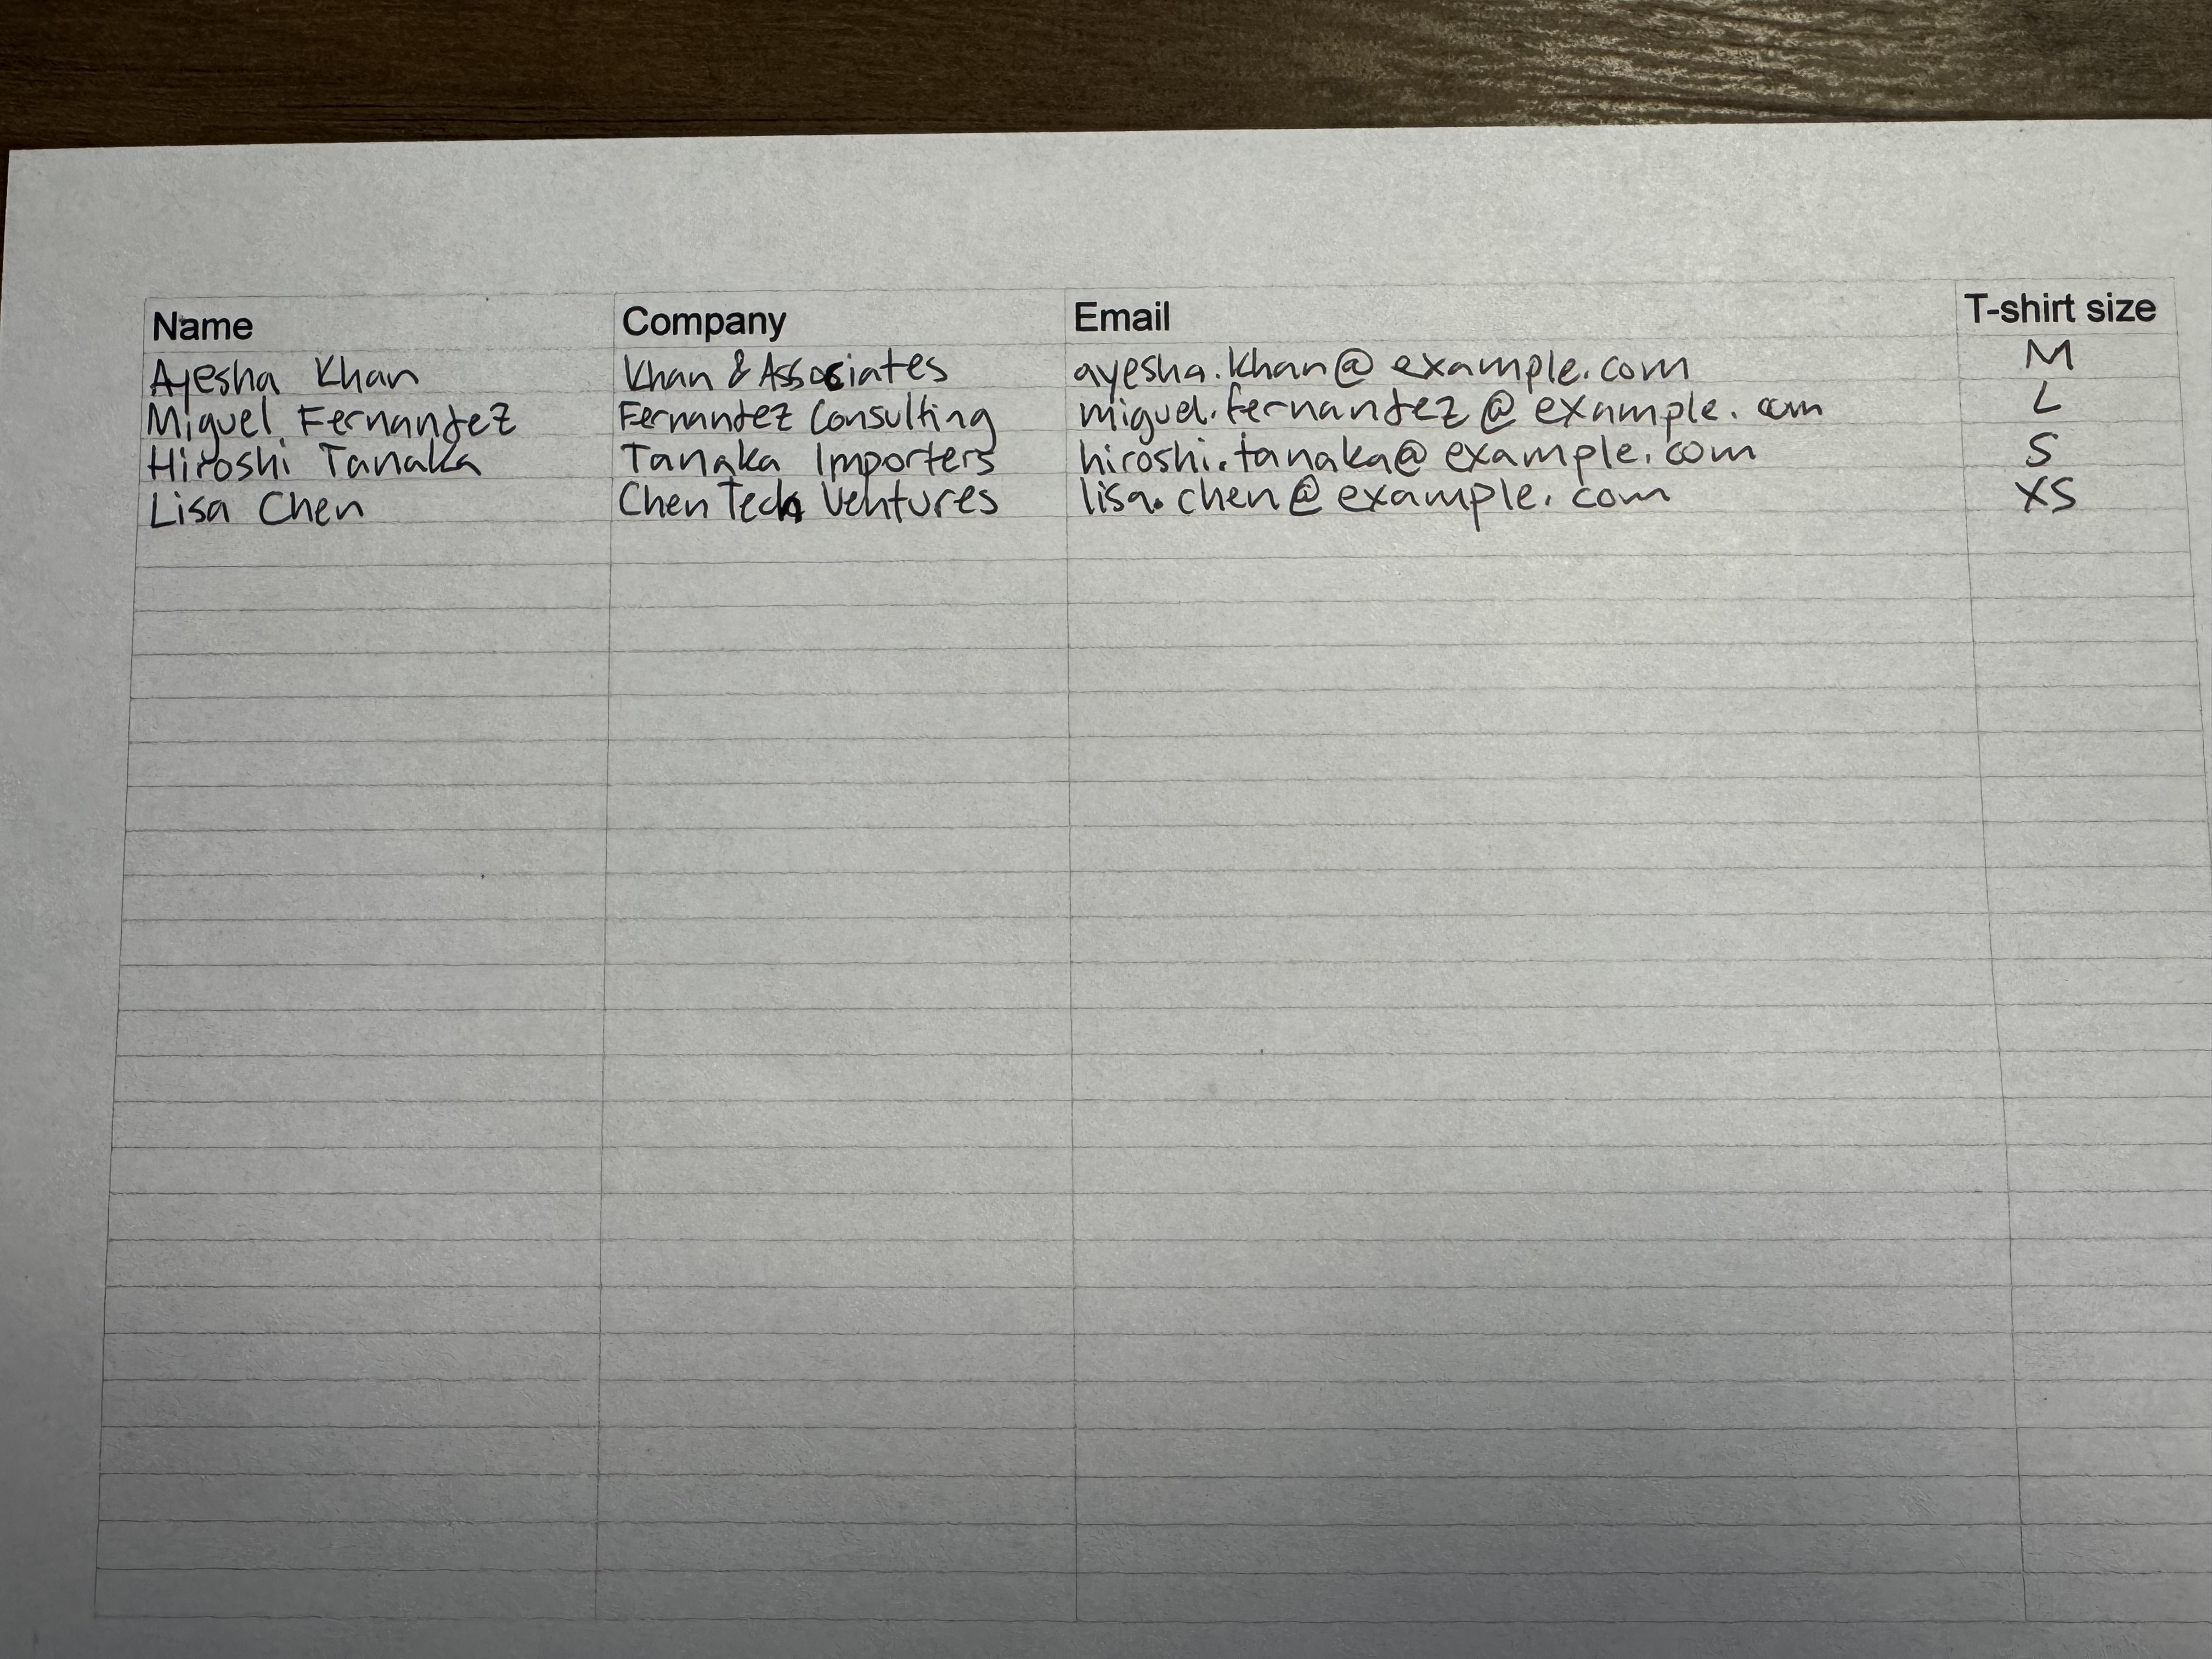 Name Company Email T-shirt size
Ayesha Khan Khan & Associates ayesha.khan@example.com M
Miguel Fernandez Fernandez Consulting miguel.fernandez@example.com L
Hiroshi Tanaka Tanaka Importers hiroshi.tanaka@example.com S
Lisa Chen Chen Tech Ventures lisa.chen@example.com XS